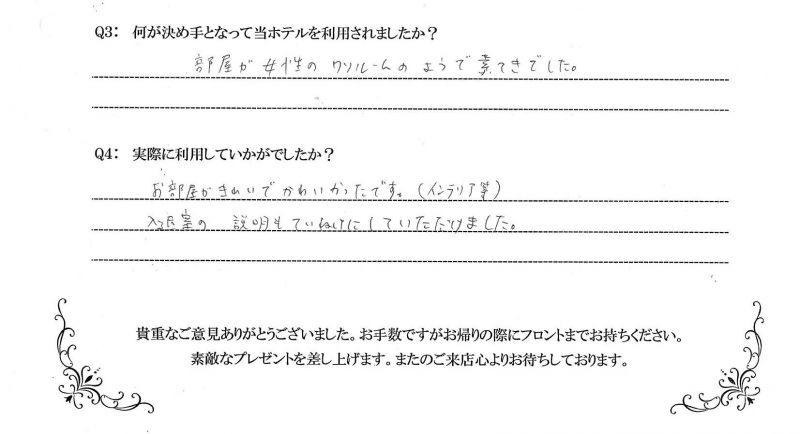 Q3: 何が決め手となって当ホテルを利用されましたか?
部屋が女性のワンルームのようで素てきでした。
Q4: 実際に利用していかがでしたか?
お部屋がきれいでかわいかったです。(インテリア等)
入退室の説明もていねいにしていただけました。
貴重なご意見ありがとうございました。お手数ですがお帰りの際にフロントまでお持ちください。
素敵なプレゼントを差し上げます。またのご来店心よりお待ちしております。